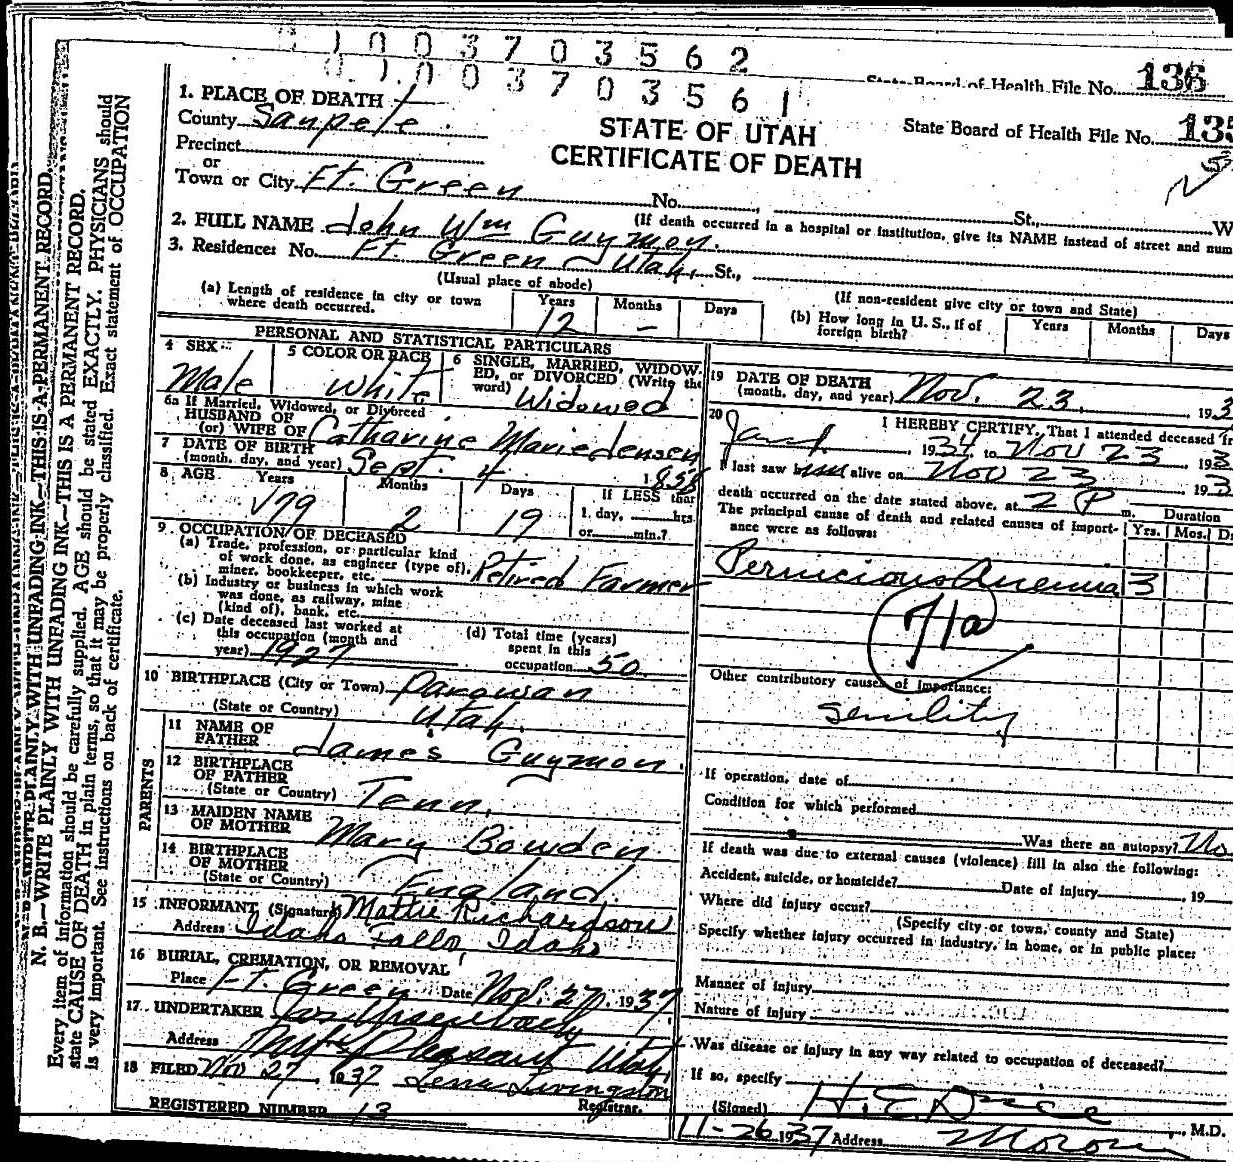 1003703562
State Board of Health File No. 136
1003703561
1. PLACE OF DEATH
STATE OF UTAH
State Board of Health File No. 135
County Sanpete
CERTIFICATE OF DEATH
Precinct
or
Town or City Ft. Green No. St., W
(If death occurred in a hospital or institution, give its NAME instead of street and num
2. FULL NAME John Wm Guymon.
3. Residence: No. Ft. Green Utah. St.,
(Usual place of abode)
(If non-resident give city or town and State)
(a) Length of residence in city or town where death occurred. Years 12 Months - Days
(b) How long in U. S., if of foreign birth? Years Months Days
PERSONAL AND STATISTICAL PARTICULARS
4 SEX Male
5 COLOR OR RACE White
6 SINGLE, MARRIED, WIDOWED, or DIVORCED (Write the word) Widowed
6a If Married, Widowed, or Divorced
HUSBAND OF
(or) WIFE OF Catharine Marie Jensen
7 DATE OF BIRTH
(month, day, and year) Sept. 4 1858
8 AGE Years 79 Months 2 Days 19 If LESS than
1 day, hrs.
or min.?
9. OCCUPATION OF DECEASED
(a) Trade, profession, or particular kind
of work done, as engineer (type of),
miner, bookkeeper, etc. Retired Farmer
(b) Industry or business in which work
was done, as railway, mine
(kind of), bank, etc.
(c) Date deceased last worked at
this occupation (month and
year) 1927
(d) Total time (years)
spent in this
occupation 50
10 BIRTHPLACE (City or Town) Parowan
(State or Country) Utah.
PARENTS
11 NAME OF
FATHER James Guymon.
12 BIRTHPLACE
OF FATHER
(State or Country) Tenn.
13 MAIDEN NAME
OF MOTHER Mary Bowden
14 BIRTHPLACE
OF MOTHER
(State or Country) England.
15 INFORMANT (Signature) Mattie Richardson
Address Idaho Falls, Idaho
16 BURIAL, CREMATION, OR REMOVAL
Place Ft. Green Date Nov. 27, 1937
17. UNDERTAKER
Address Mt. Pleasant Utah,
18 FILED Nov 27 1937 Lena Livingston
Registrar.
REGISTERED NUMBER 13
19 DATE OF DEATH
(month, day, and year) Nov. 23. 193
20 I HEREBY CERTIFY, That I attended deceased fr
1934 to Nov 23 193
I last saw him alive on Nov 23 193
death occurred on the date stated above, at 2 P m. Duration
The principal cause of death and related causes of importance were as follows: Yrs. Mos. D
Pernicious Anemia 3
71a
Other contributory causes of importance:
senility
If operation, date of
Condition for which performed
Was there an autopsy? No
If death was due to external causes (violence) fill in also the following:
Accident, suicide, or homicide? Date of injury 19
Where did injury occur?
(Specify city or town, county and State)
Specify whether injury occurred in industry, in home, or in public place:
Manner of injury
Nature of injury
Was disease or injury in any way related to occupation of deceased?
If so, specify
(Signed) M.D.
11-26 1937 Address Moroni
N. B.—WRITE PLAINLY WITH UNFADING INK—THIS IS A PERMANENT RECORD.
Every item of information should be carefully supplied. AGE should be stated EXACTLY. PHYSICIANS should
state CAUSE OF DEATH in plain terms, so that it may be properly classified. Exact statement of OCCUPATION
is very important. See instructions on back of certificate.